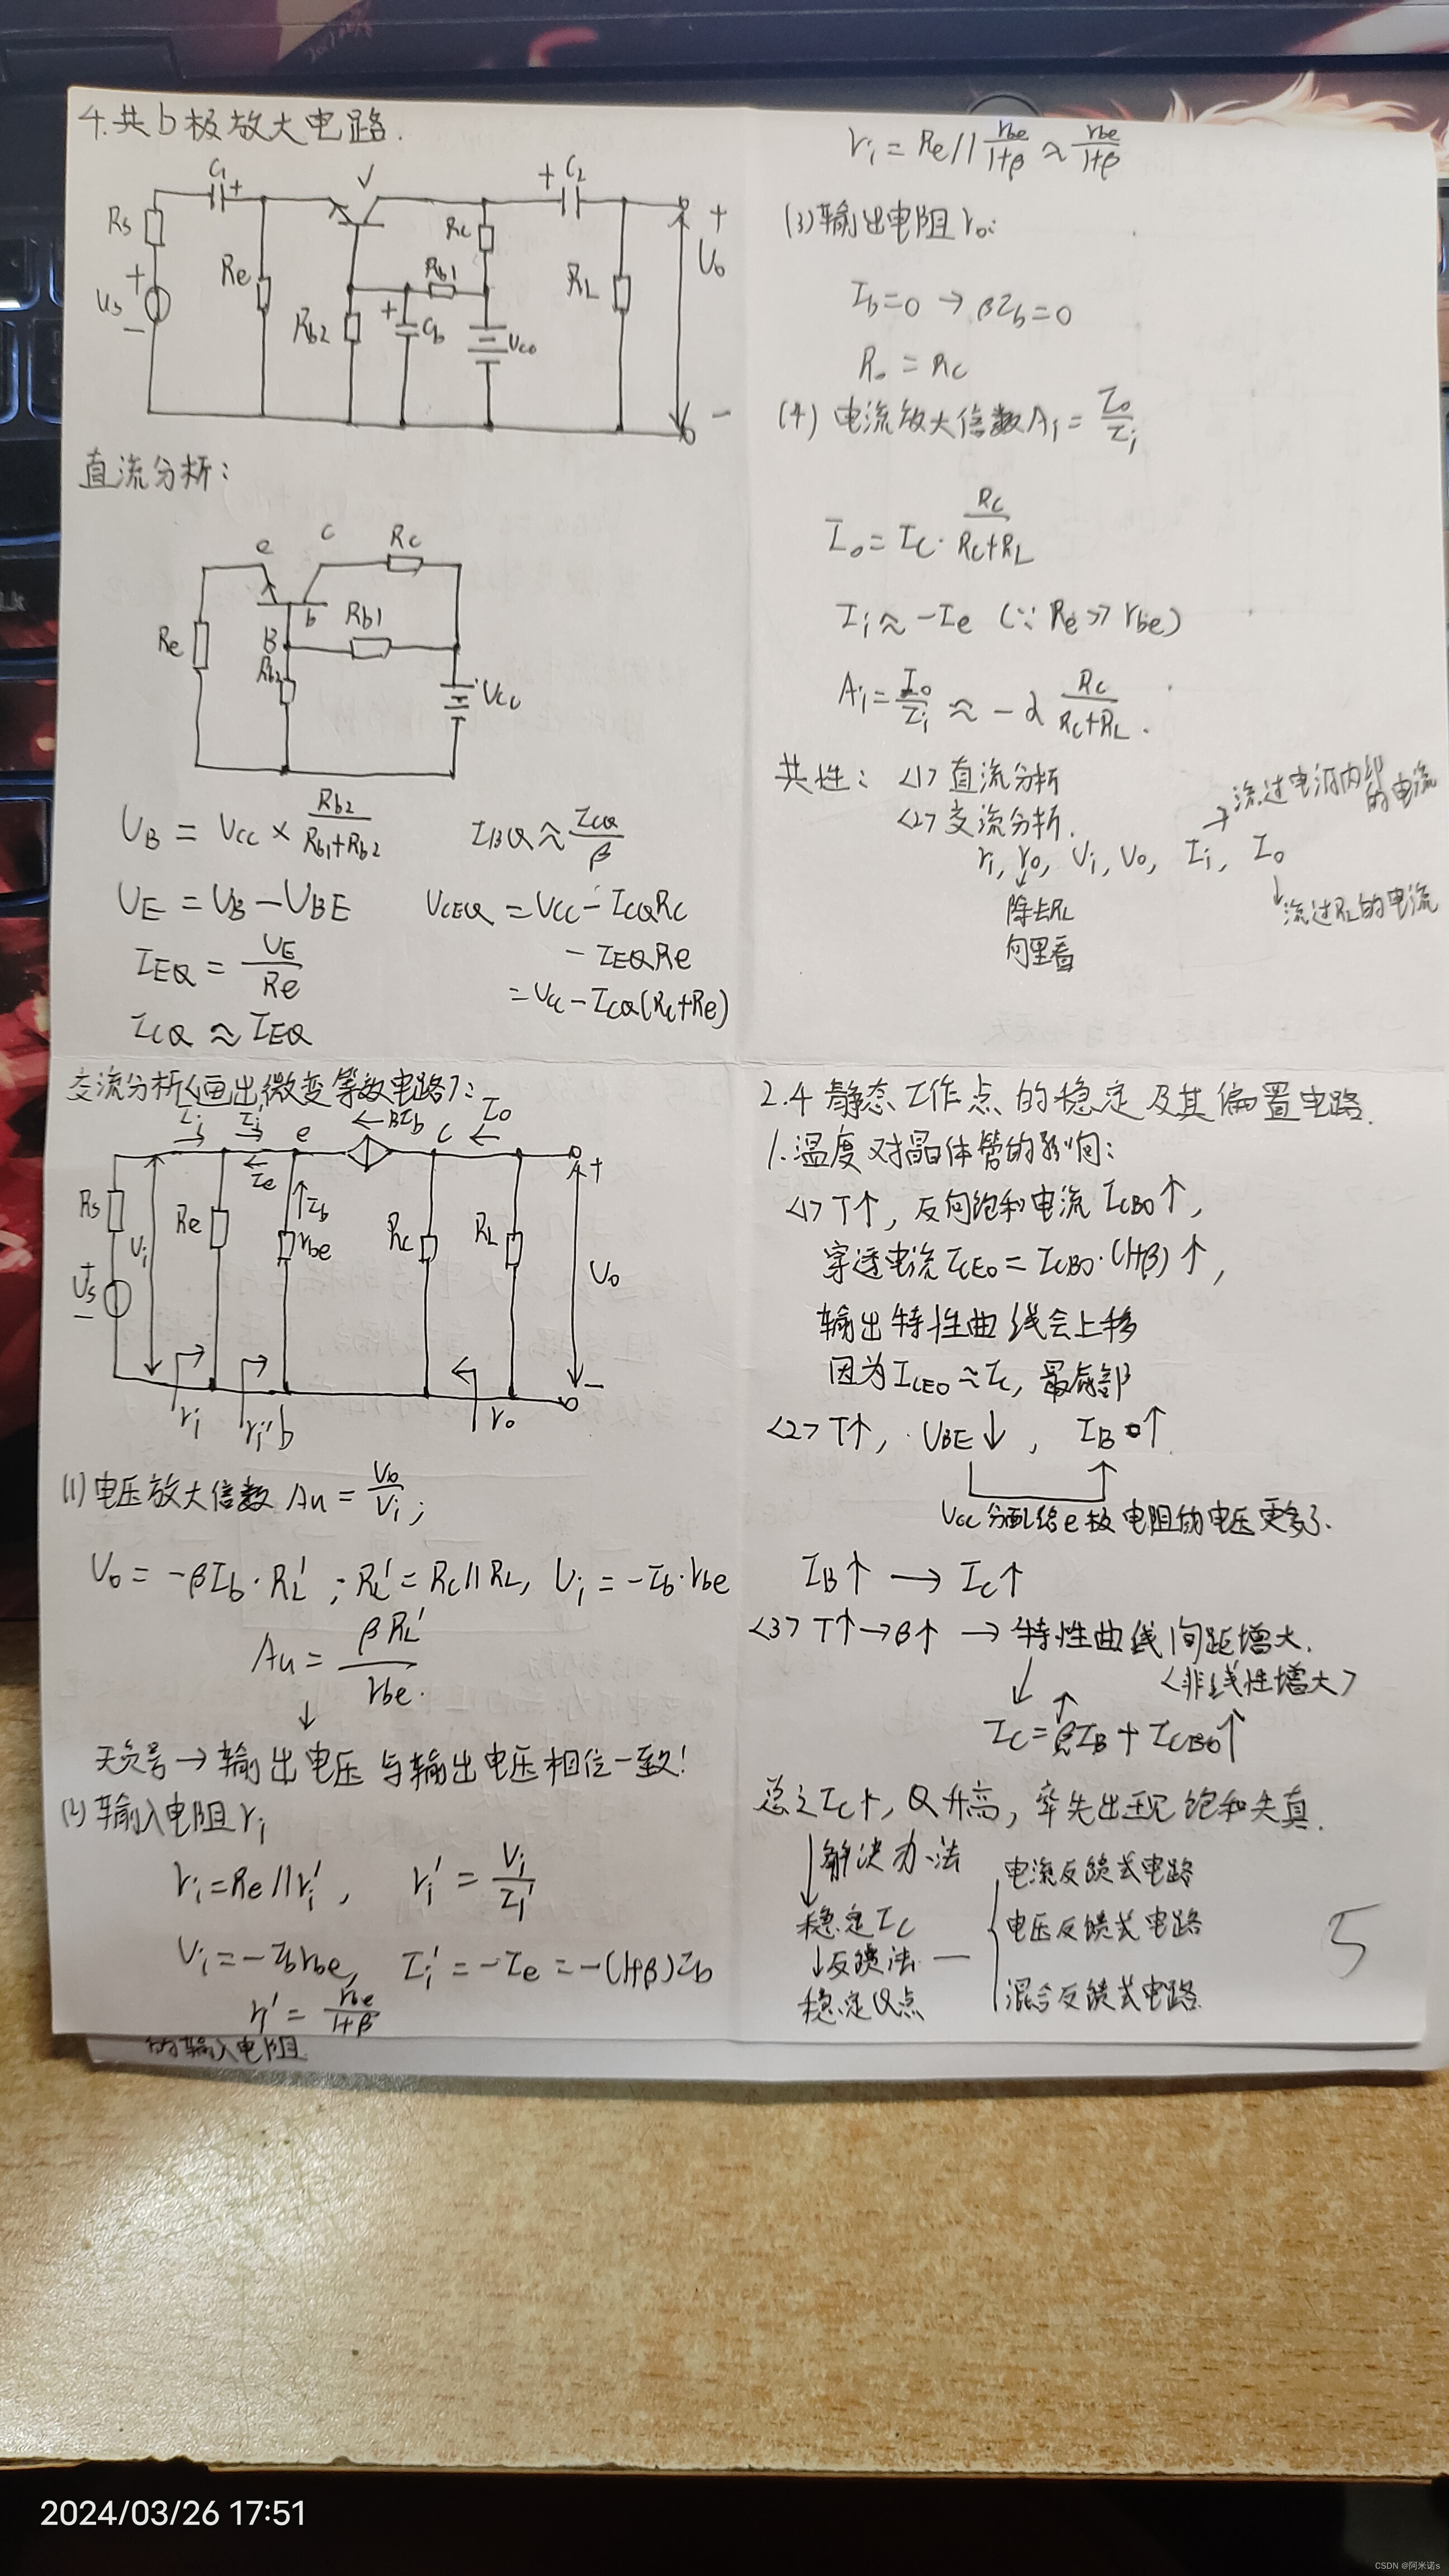 4.共b极放大电路.
C1 + V + C2
Rs Re Rc Rb1 RL + Uo
+ Us − Rb2 + Cb Vcc −
直流分析:
e c Rc
Re b Rb1
B Rb2 Vcc
UB = Vcc × Rb2/(Rb1+Rb2) IBQ ≈ ICQ/β
UE = UB − UBE UCEQ = Vcc − ICQRc
IEQ = UE/Re − IEQRe
ICQ ≈ IEQ = Vcc − ICQ(Rc+Re)
交流分析<画出微变等效电路>:
Ii Ii' e ←βIb c ← Io
Ie
Rs Ui Re ↑Ib rbe Rc RL + Uo
+ Us − −
ri ri'b ro
(1)电压放大倍数 Au = Uo/Ui;
Uo = −βIb·RL' ; RL' = Rc//RL, Ui = −Ib·rbe
Au = βRL'/rbe.
↓
无负号→输出电压与输出电压相位一致!
(2)输入电阻ri
ri = Re//ri', ri' = Ui/Ii'
Ui = −Ibrbe, Ii' = −Ie = −(1+β)Ib
ri' = rbe/(1+β)
的输入电阻
ri = Re//rbe/(1+β) ≈ rbe/(1+β)
(3)输出电阻ro:
Ib=0 → βIb=0
Ro = Rc
(4)电流放大倍数Ai = Io/Ii
Io = Ic·Rc/(Rc+RL)
Ii ≈ −Ie (∵ Re >> rbe)
Ai = Io/Ii ≈ −α Rc/(Rc+RL).
共性: <1>直流分析
<2>交流分析.
→流过电源内部的电流
ri, ro, Ui, Uo, Ii, Io
↓除去RL
向里看
↓流过RL的电流
2.4 静态工作点的稳定及其偏置电路.
1.温度对晶体管的影响:
<1>T↑, 反向饱和电流ICBO↑,
穿透电流ICEO = ICBO·(1+β)↑,
输出特性曲线会上移
因为ICEO≈Ic, 最底部
<2>T↑, UBE↓, IB↑
Vcc分配给e极电阻的电压更多了.
IB↑ → IC↑
<3>T↑→β↑ → 特性曲线间距增大.
<非线性增大>
IC = β↑IB + ICBO↑
总之IC↑, Q升高, 率先出现饱和失真.
↓解决办法
稳定IC
↓反馈法 —
稳定Q点
电流反馈式电路
电压反馈式电路
混合反馈式电路.
5
2024/03/26 17:51
CSDN @阿米诺s